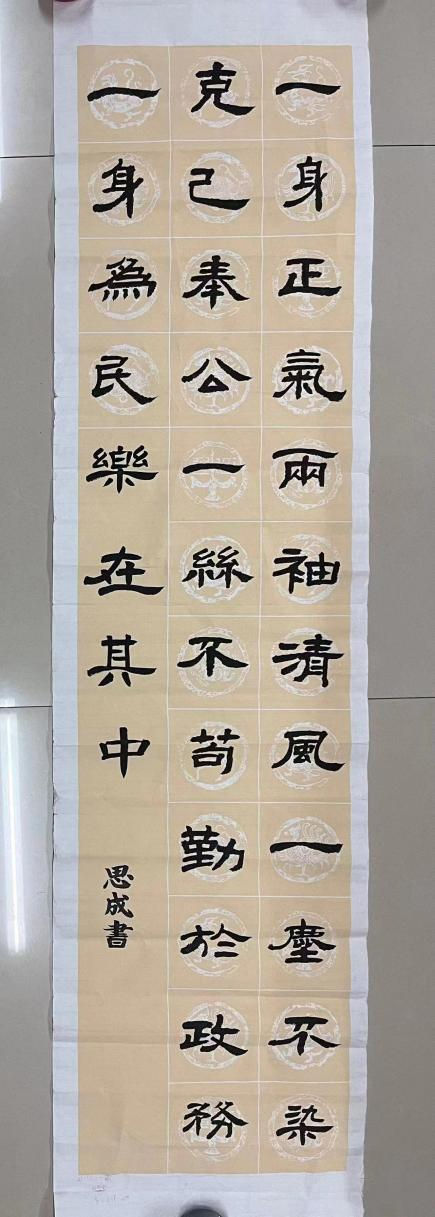 一身正氣兩袖清風一塵不染
克己奉公一絲不苟勤於政務
一身為民樂在其中
思成書